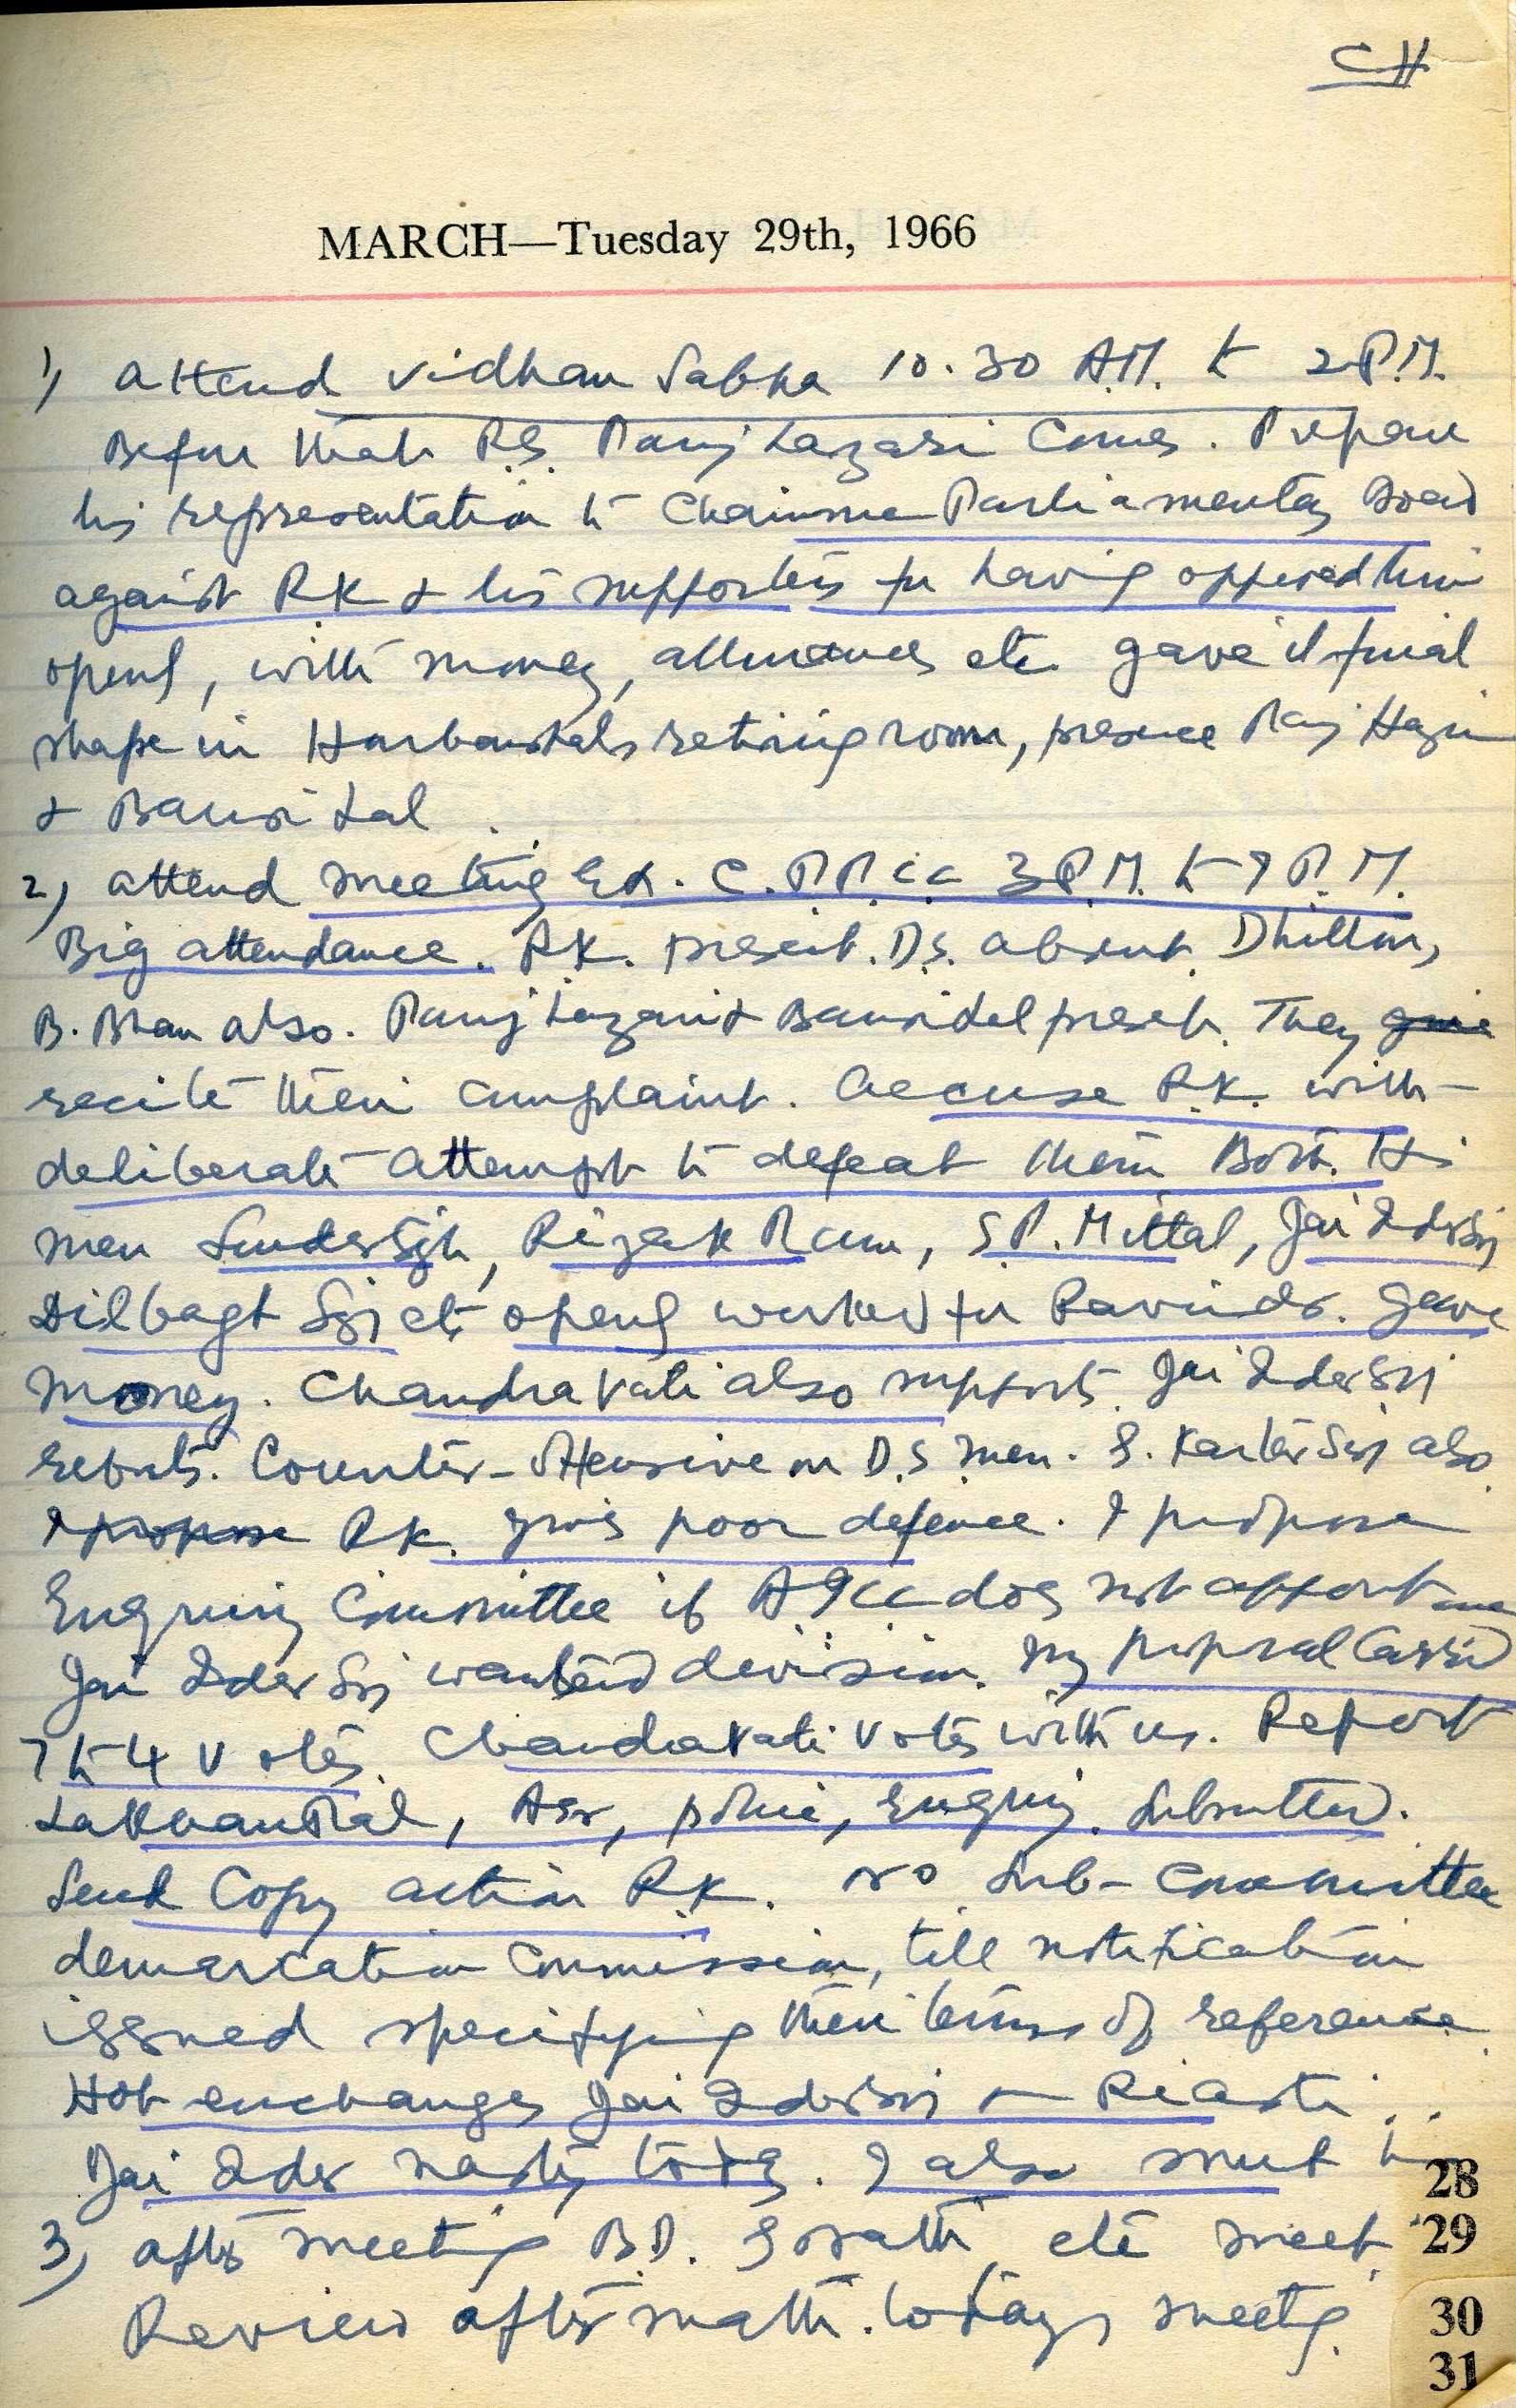 CH
MARCH—Tuesday 29th, 1966
1) attend Vidhan Sabha 10.30 A.M. to 2 P.M.
Before that R.S. comes. Prepare
his representation to Chairman Parliamentary Board
against RK & his supporters for having opposed him
openly, with money, etc gave it final
shape in retiring room, presence
& Bansi Lal
2) attend meeting Ex. C. P.P.C.C 3 P.M. to 7 P.M.
Big attendance. R.K. present. D.S. absent. Dhillon,
B. Bhan also. & Bansi Lal present. They give
recite their complaint. accuse R.K. with
deliberate attempt to defeat them Both. His
men Sunder Sgh, Rizak Ram, S.P. Mittal, Jai Inder Sgh
Dilbagh Sgh etc openly worked for Ravinder. gave
money. Chandravati also supports. Jai Inder Sgh
rebuts. Counter-offensive on D.S men. S. Kartar Sgh also
I propose RK. gives poor defence. I propose
Enquiry Committee if AICC does not appoint one
Jai Inder Sgh wanted division. My proposal Carried
7 to 4 votes. Chandravati votes with us. Report
Lakhanpal, Asr, police, enquiry. Submitted.
Send Copy action R.K. no Sub-Committee
demarcation Commission, till notification
issued specifying their terms of reference
Hot exchanges Jai Inder Sgh
Jai Inder nasty today. I also
3) after meeting B.D. etc meet.
Review aftermath. todays meetg.
28
29
30
31